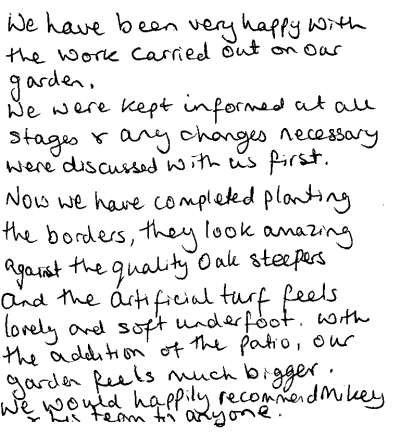 We have been very happy with
the work carried out on our
garden.
We were kept informed at all
stages & any changes necessary
were discussed with us first.
Now we have completed planting
the borders, they look amazing
against the quality Oak sleepers
and the artificial turf feels
lovely and soft underfoot. With
the addition of the patio, our
garden feels much bigger.
We would happily recommend Mikey
& his team to anyone.